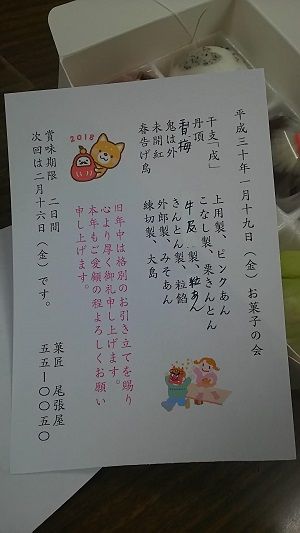 平成三十年一月十九日(金)お菓子の会
干支「戌」 上用製、ピンクあん
丹頂 こなし製、栗きんとん
香梅 牛皮製 粒あん
鬼は外 きんとん製、粒餡
未開紅 外郎製、みそあん
春告げ鳥 練切製、大島
2018
旧年中は格別のお引き立てを賜り
心より厚く御礼申し上げます。
本年もご愛顧の程よろしくお願い
申し上げます。
賞味期限 二日間
次回は二月十六日(金)です。
菓匠 尾張屋
五五ー〇〇五〇